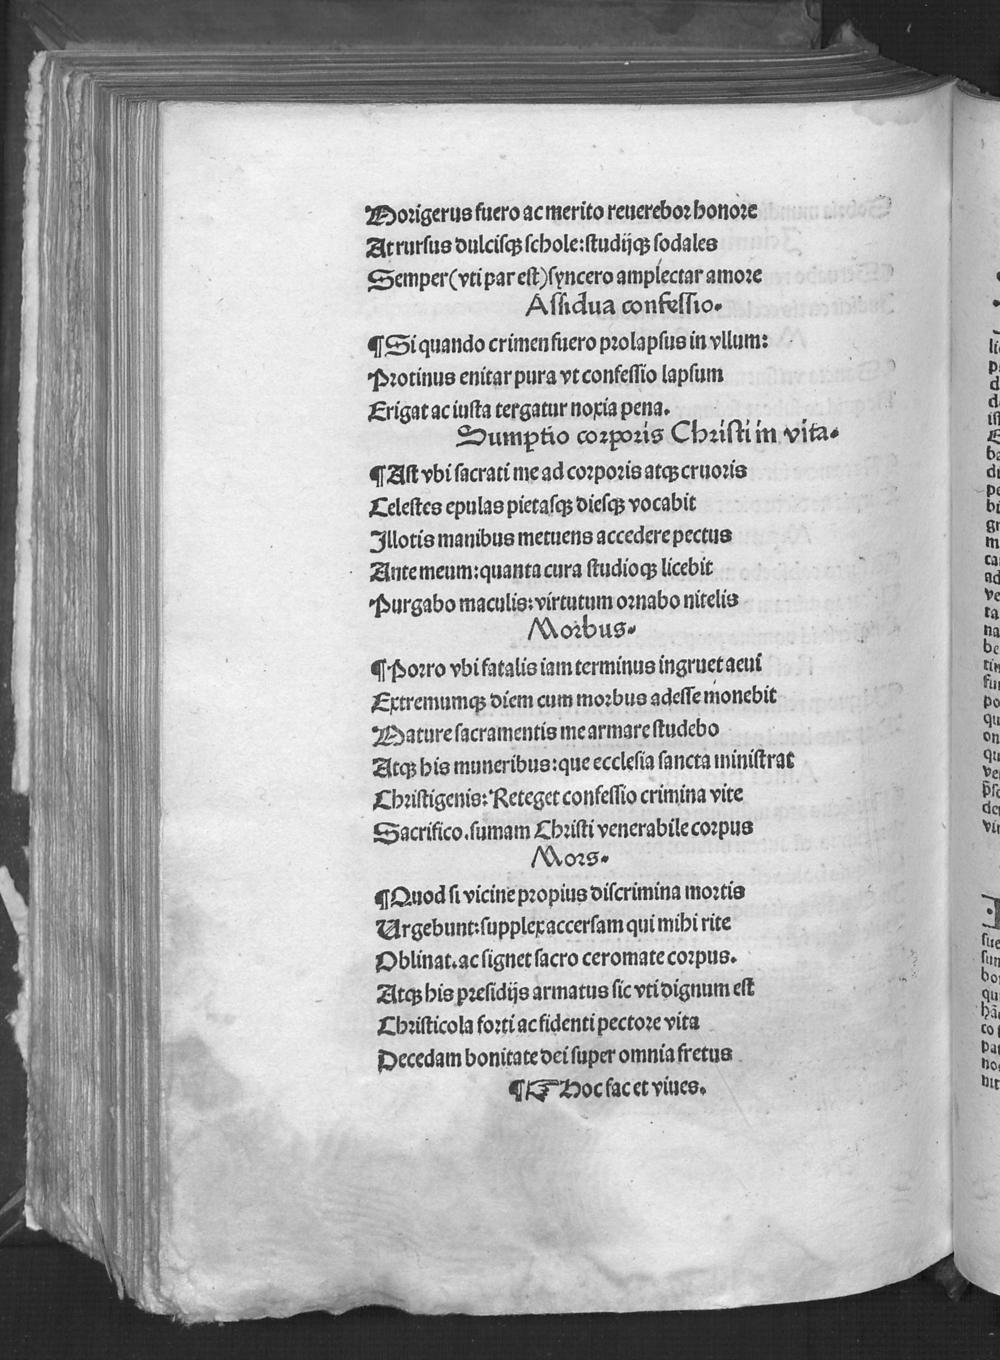 Morigerus fuero ac merito reuerebor honore
At rursus dulcisqꝫ schole: studijqꝫ sodales
Semper (vti par est) syncero amplectar amore
Assidua confessio.
¶ Si quando crimen fuero prolapsus in vllum:
Protinus enitar pura vt confessio lapsum
Erigat ac iusta tergatur noxia pena.
Sumptio corporis Christi in vita.
¶ Ast vbi sacrati me ad corporis atqꝫ cruoris
Celestes epulas pietasqꝫ diesqꝫ vocabit
Illotis manibus metuens accedere pectus
Ante meum: quanta cura studioqꝫ licebit
Purgabo maculis: virtutum ornabo nitelis
Morbus.
¶ Porro vbi fatalis iam terminus ingruet aeui
Extremumqꝫ diem cum morbus adesse monebit
Mature sacramentis me armare studebo
Atqꝫ his muneribus: que ecclesia sancta ministrat
Christigenis: Reteget confessio crimina vite
Sacrifico. sumam Christi venerabile corpus
Mors.
¶ Quod si vicine propius discrimina mortis
Urgebunt: supplex accersam qui mihi rite
Oblinat. ac signet sacro ceromate corpus.
Atqꝫ his presidijs armatus sic vti dignum est
Christicola forti ac fidenti pectore vita
Decedam bonitate dei super omnia fretus
¶ ☞ Hoc fac et viues.